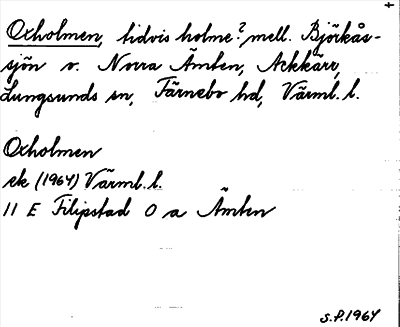 Oxholmen, tidvis holme? mell. Björkås-
sjön o. Norra Ämten, Ackkärr,
Lungsunds sn, Färnebo hd, Värml. l.
Oxholmen
ek (1964) Värml. l.
11 E Filipstad 0 a Ämten
S.P. 1964